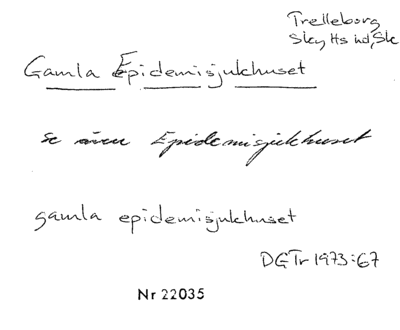 Trelleborg
Sky Hs hd, Sk
Gamla Epidemisjukhuset
se även Epidemisjukhuset
gamla epidemisjukhuset
DGTr 1973:67
Nr 22035